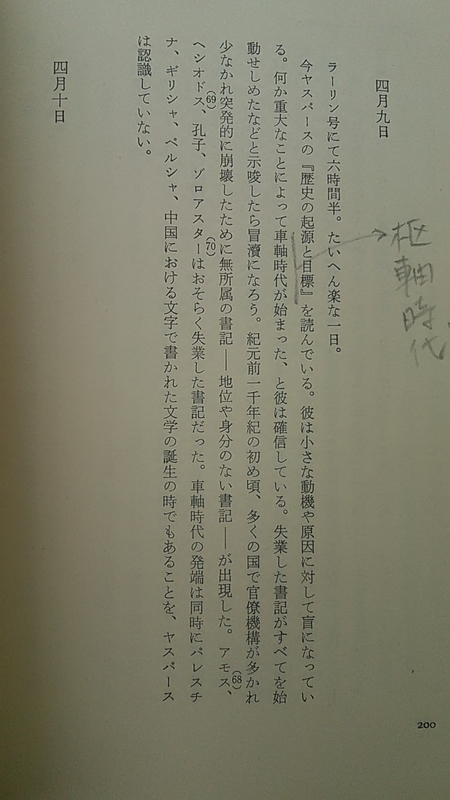 四月九日
ラーリン号にて六時間半。たいへん楽な一日。
今ヤスパースの『歴史の起源と目標』を読んでいる。彼は小さな動機や原因に対して盲になってい
る。何か重大なことによって車軸時代が始まった、と彼は確信している。失業した書記がすべてを始
動せしめたなどと示唆したら冒瀆になろう。紀元前一千年紀の初め頃、多くの国で官僚機構が多かれ
少なかれ突発的に崩壊したために無所属の書記――地位や身分のない書記――が出現した。アモス、(68)
ヘシオドス、(69)孔子、ゾロアスター(70)はおそらく失業した書記だった。車軸時代の発端は同時にパレスチ
ナ、ギリシャ、ペルシャ、中国における文字で書かれた文学の誕生の時でもあることを、ヤスパース
は認識していない。
四月十日
枢軸時代
200